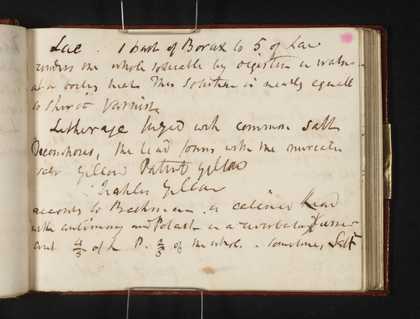 Lac. 1 part of Borax to 5 of Lac
renders the whole soluable by digestion in water
at a boiling heat This Solution is nearly equall
to Spirit Varnish
Litherage fuzed with common Salt
Decomposes, the Lead forms with the muriatic
acid Yellow Patent Yellow
Naples Yellow
according to Beckman is calcined Lead
with antimony and Potash in a reverberatory Furnace
of L P. of the whole - sometimes Salt